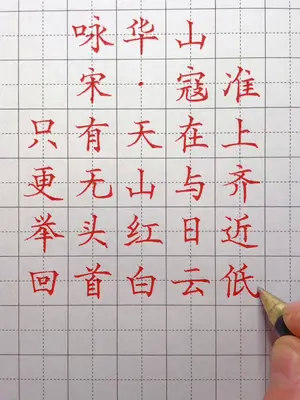 咏华山
宋·寇准
只有天在上
更无山与齐
举头红日近
回首白云低